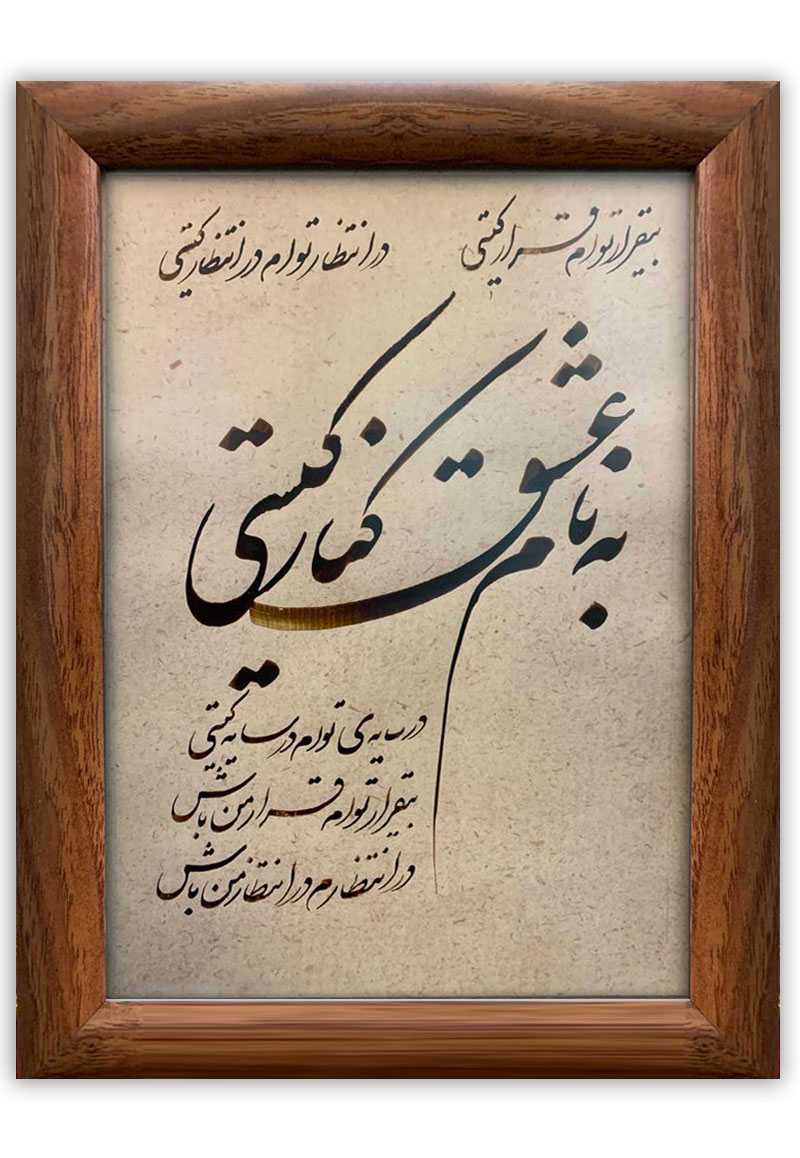 بیقرار توام قرار کیستی
در انتظار توام در انتظار کیستی
به نام عشق کنار کیستی
در سایه‌ی توام در سایه کیستی
بیقرار توام قرار من باش
در انتظارم در انتظار من باش